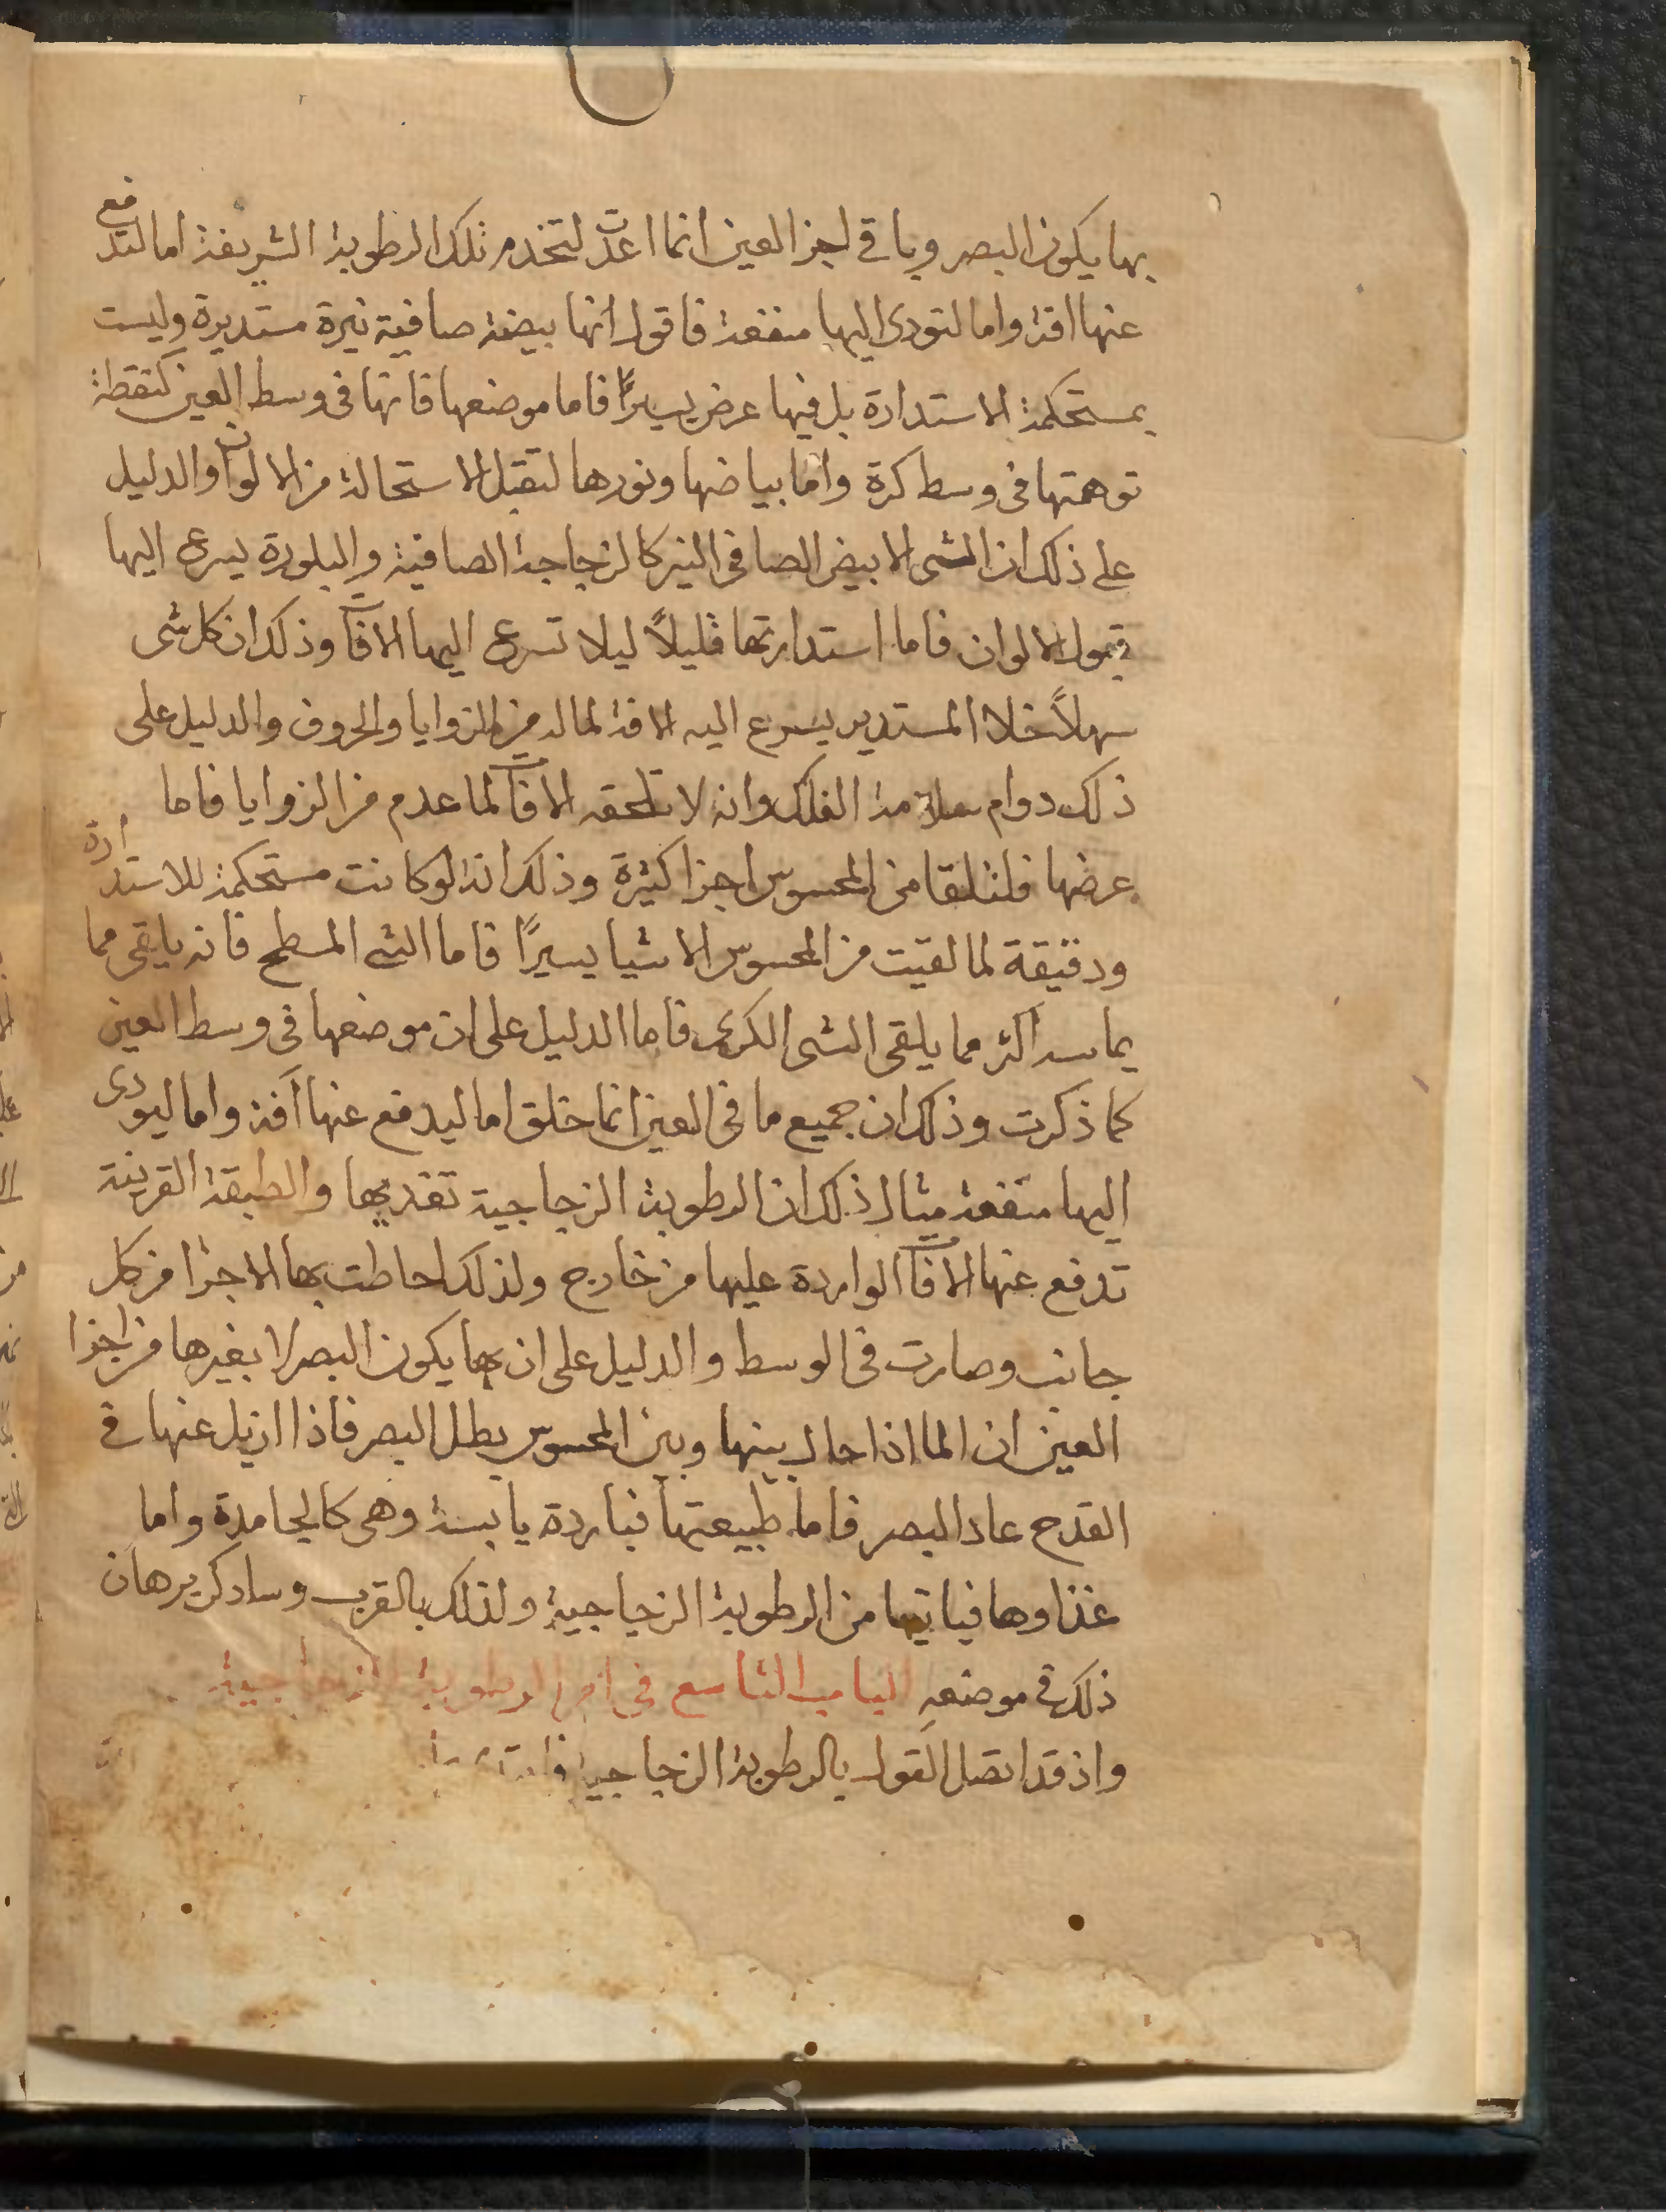 بها يكون البصر وباقي اجزا العين انما اعدت لتخدم تلك الرطوبة الشريفة اما لتدفع
عنها افة واما لتودى اليها منفعة فاقول انها بيضة صافية نيرة مستديرة وليست
بمستحكمة الاستدارة بل فيها عرض يسيرًا فاما موضعها فانها فى وسط العين كنقطة
توهمتها فى وسط كرة واما بياضها ونورها لتقبل الاستحالة من الالوان والدليل
على ذلك ان الشى الابيض الصافى النير كالزجاجة الصافية والبلورة يسرع اليها
قبول الالوان فاما استدارتها قليلاً ليلا تسرع اليها الافات وذلك ان كل شى
سهلاً خلا المستدير يسرع اليه الافة لما له من الزوايا والحروف والدليل على
ذلك دوام الفلك وانه لا تلحقه الافات لما عدم من الزوايا فاما
عرضها فلتلقا من المحسوس اجزا كثيرة وذلك انه لو كانت مستحكمة للاستدارة
ودقيقة لما لقيت من المحسوس الا شيا يسيرًا فاما الشى المسطح فانه يلقى مما
يماسه اكثر مما يلقى الشى الكرى فاما الدليل على ان موضعها فى وسط العين
كما ذكرت وذلك ان جميع ما فى العين انما خلق اما ليدفع عنها آفة واما ليودى
اليها منفعة مثال ذلك ان الرطوبة الزجاجية تغذيها والطبقة القرنية
تدفع عنها الافات الواردة عليها من خارج ولذلك احاطت بها الاجزا من كل
جانب وصارت فى الوسط والدليل على ان بها يكون البصر لا بغيرها من اجزا
العين ان الما اذا حال بينها وبين المحسوس بطل البصر فاذا ازيل عنها فى
القدح عاد البصر فاما طبيعتها فباردة يابسة وهى كالجامدة واما
غذاوها فياتيها من الرطوبة الزجاجية ولذلك بالقرب وساذكر برهان
ذلك فى موضعه الباب التاسع في امر الرطوبة الزجاجية
واذ قد اتصل القول بالرطوبة الزجاجية